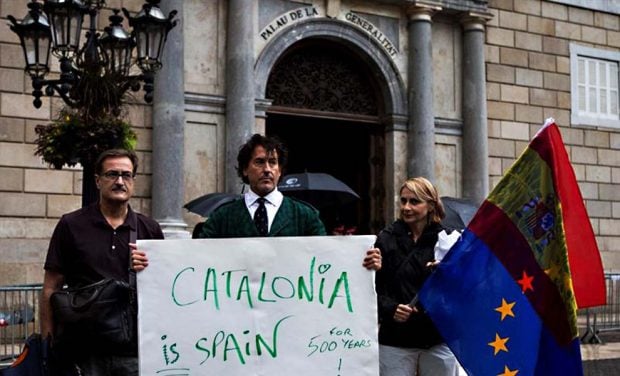 PALAU DE LA GENERALITAT
CATALONIA
is SPAIN FOR
500 YEARS
!